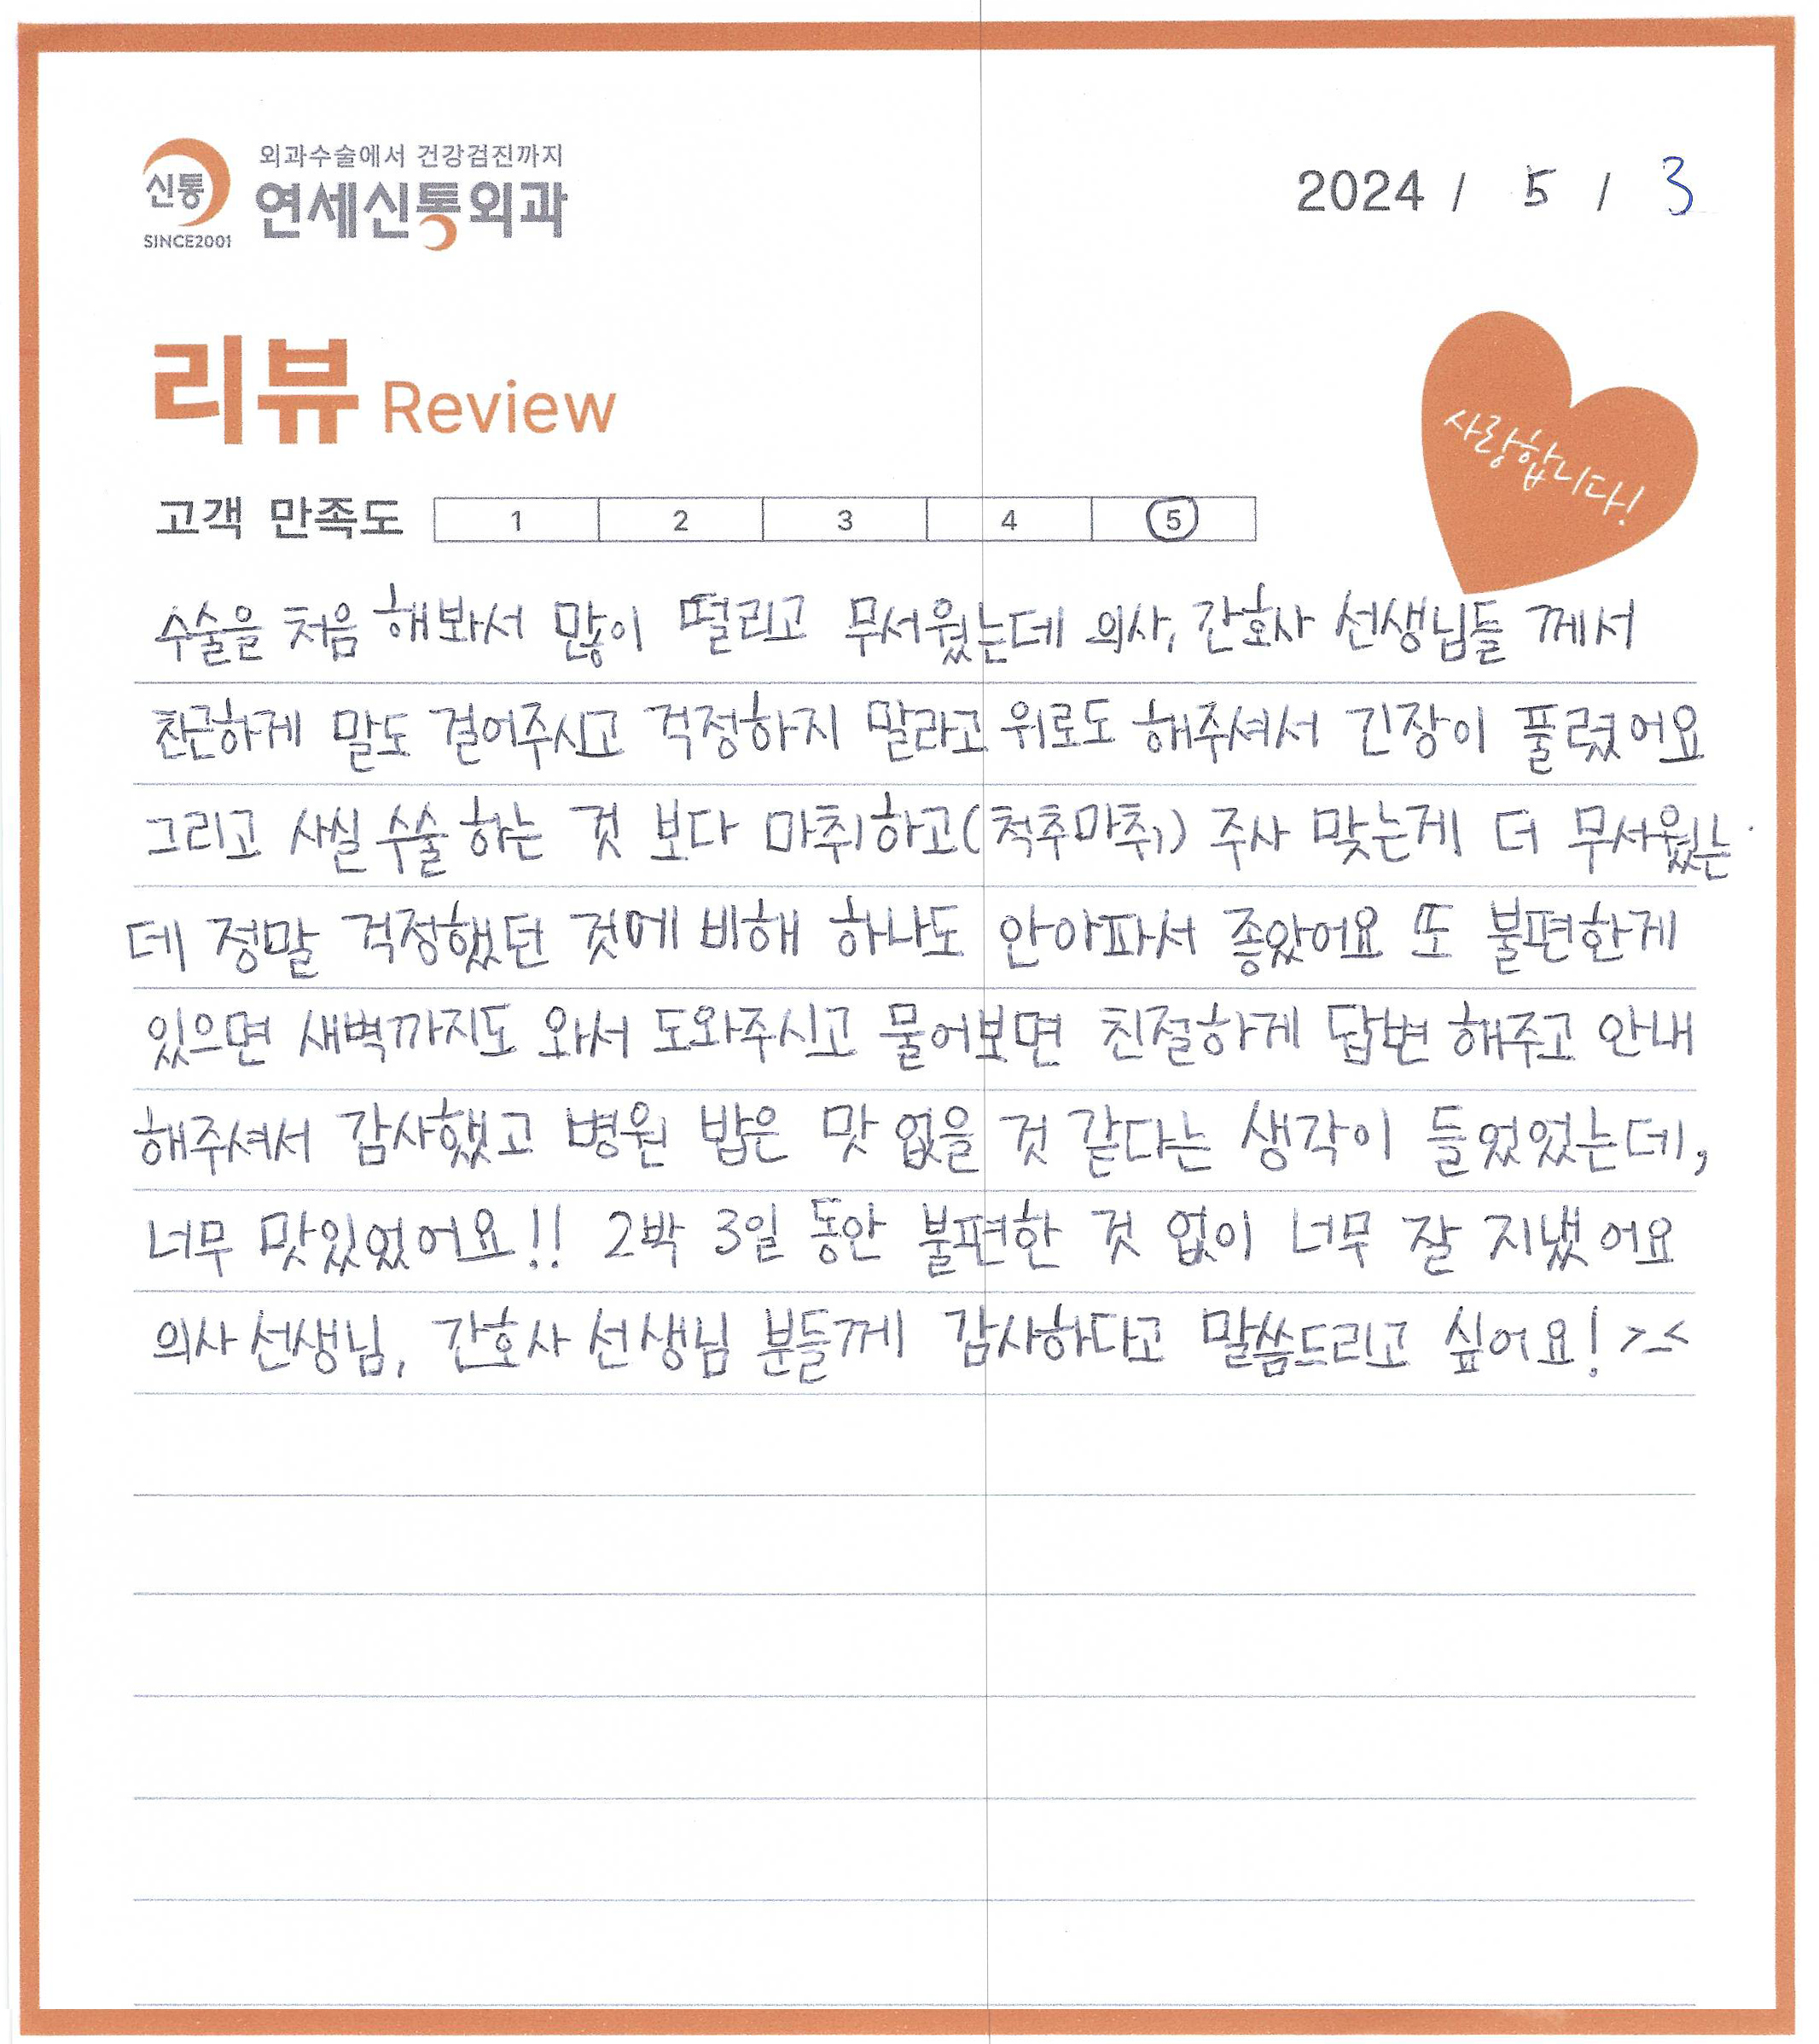 신통
SINCE2001
외과수술에서 건강검진까지
연세신통외과
2024 / 5 / 3
리뷰 Review
사랑합니다!
고객 만족도 1 2 3 4 5
수술을 처음 해봐서 많이 떨리고 무서웠는데 의사, 간호사 선생님들 께서
친근하게 말도 걸어주시고 걱정하지 말라고 위로도 해주셔서 긴장이 풀렸어요
그리고 사실 수술 하는 것 보다 마취하고(척추마취) 주사 맞는게 더 무서웠는
데 정말 걱정했던 것에 비해 하나도 안아파서 좋았어요 또 불편한게
있으면 새벽까지도 와서 도와주시고 물어보면 친절하게 답변 해주고 안내
해주셔서 감사했고 병원 밥은 맛 없을 것 같다는 생각이 들었었는데,
너무 맛있었어요!! 2박 3일 동안 불편한 것 없이 너무 잘 지냈어요
의사 선생님, 간호사 선생님 분들께 감사하다고 말씀드리고 싶어요! >_<